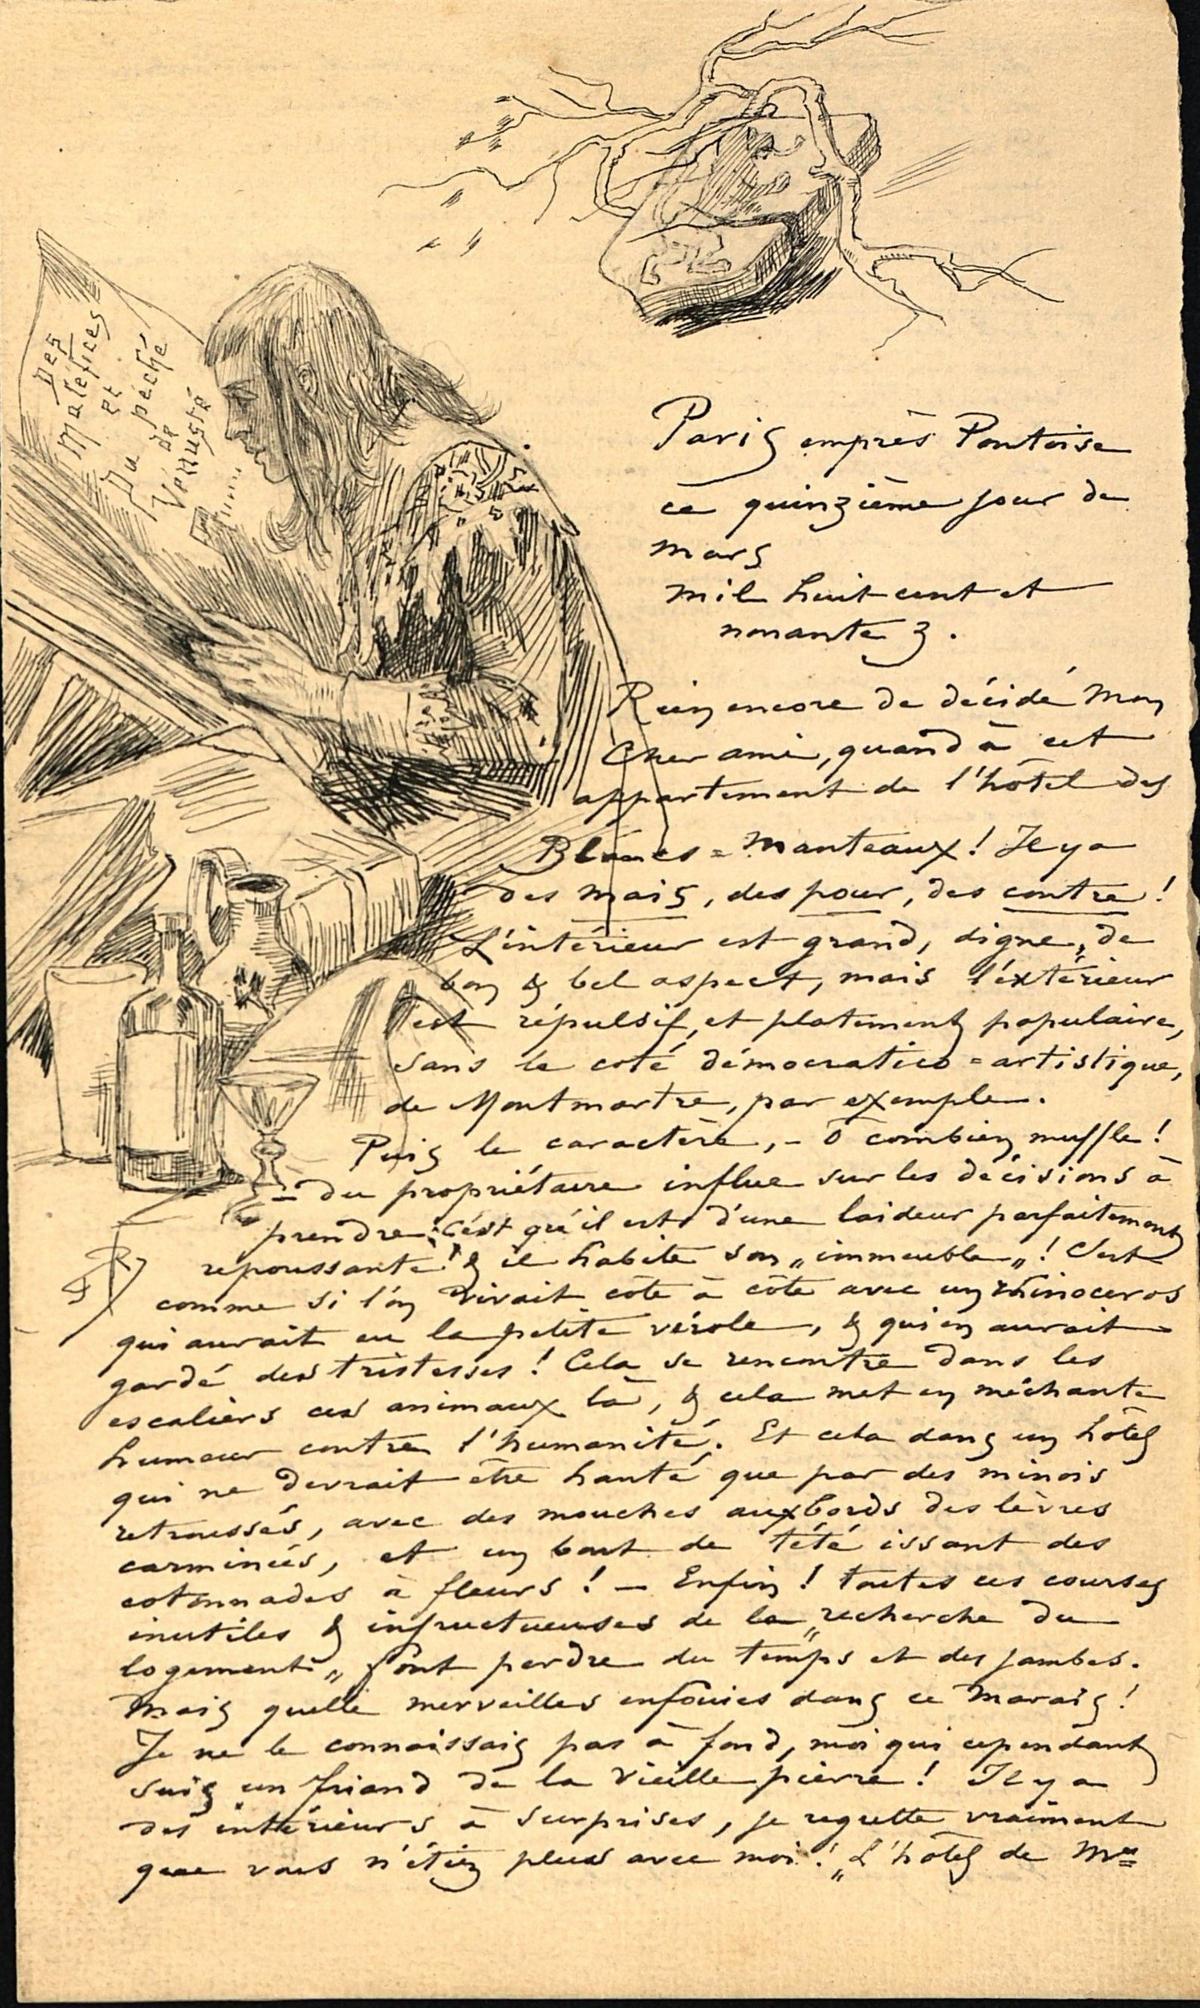 Des
Maléfices
et
Du péché
de
Vénusté
Paris emprès Pontoise
ce quinzième jour de
mars
mil huit cent et
nonante 3.
Rien encore de décidé Mon
Cher ami, quand à cet
appartement de l'hôtel des
Blancs = Manteaux! Il y a
des mais, des pour, des contre!
L'intérieur est grand, digne, de
bon & bel aspect, mais l'éxtérieur
est répulsif, et platement populaire,
sans le coté démocratico = artistique,
de Montmartre, par exemple.
Puis le caractère, - Ô combien muffle!
- du propriétaire influe sur les décisions à
prendre: c'est qu'il est d'une laideur parfaitement
repoussante! & il habite son „immeuble„! C'est
comme si l'on vivait côte à côte avec un rhinoceros
qui aurait eu la petite vérole, & qui en aurait
gardé des tristesses! Cela se rencontre dans les
escaliers ces animaux là, & cela met en méchante
humeur contre l'humanité. Et cela dans un hôtel
qui ne devrait être hanté que par des minois
retroussés, avec des mouches aux bords des lèvres
carminées, et un bout de tété issant des
cotonnades à fleurs! — Enfin! toutes ces courses
inutiles & infructueuses de la „recherche du
logement„ font perdre du temps et des jambes.
Mais quelle merveilles enfouies dans ce Marais!
Je ne le connaissais pas à fond, moi qui cependant
suis un friand de la vieille pierre! Il y a
des intérieurs à surprises, je regrette vraiment
que vous n'étiez plus avec moi! „L'hôtel de Mme